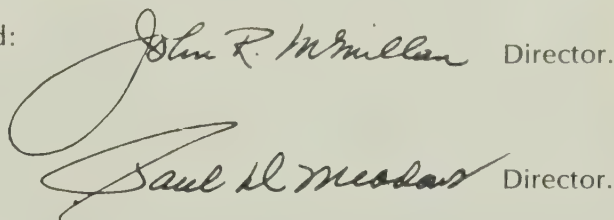 d:
John R. McMillan Director.
Paul D Meadows Director.